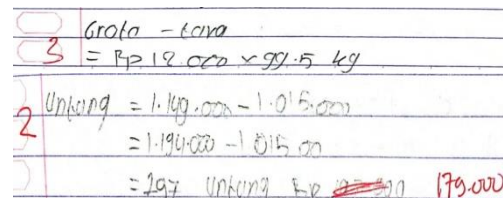 Groto - tara
3 = Rp 12.000 x 99.5 kg
Untung = 1.149.000 - 1.015.000
2
= 1.194.000 - 1.015.00
= 297 Untung Rp 179.000